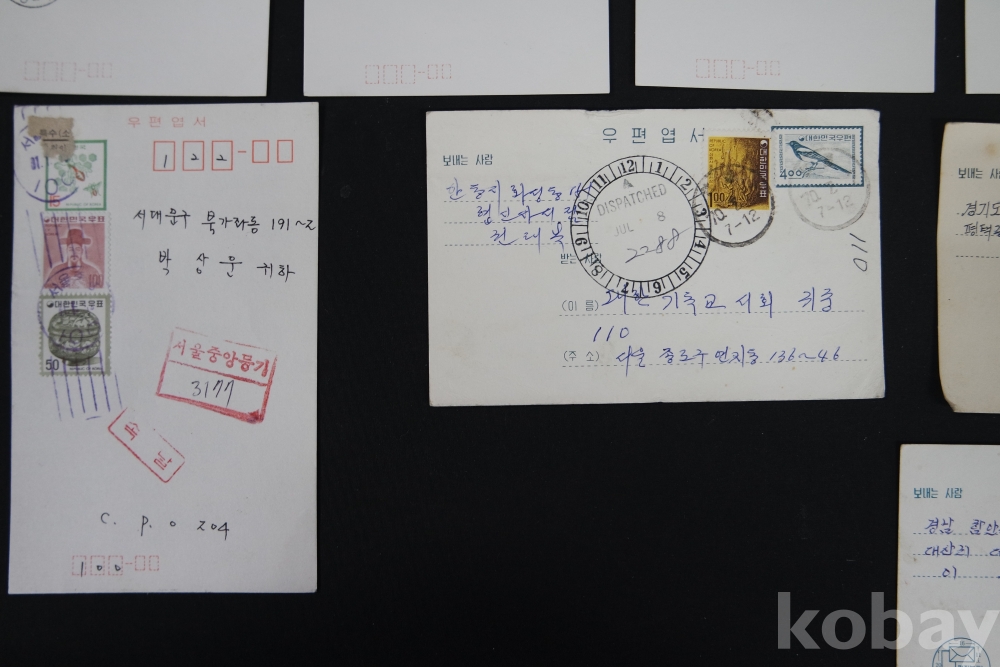 우편엽서
122
서대문구 북가좌동 191~2
박 상 운 귀하
100
대한민국우표
50
서울중앙등기
3177
속달
C. P. O 204
100
우 편 엽 서
보내는 사람
대한민국우편
400
대한민국우표
100
DISPATCHED
JUL 8
2288
7-12
7-12
110
받는 사람
(이 름) 대한 기독교 서회 귀중
110
(주 소) 서울 종로구 연지동 136~46
보내는 사람
경기도
평택
보내는 사람
경남 함안
대산리
이
kobay